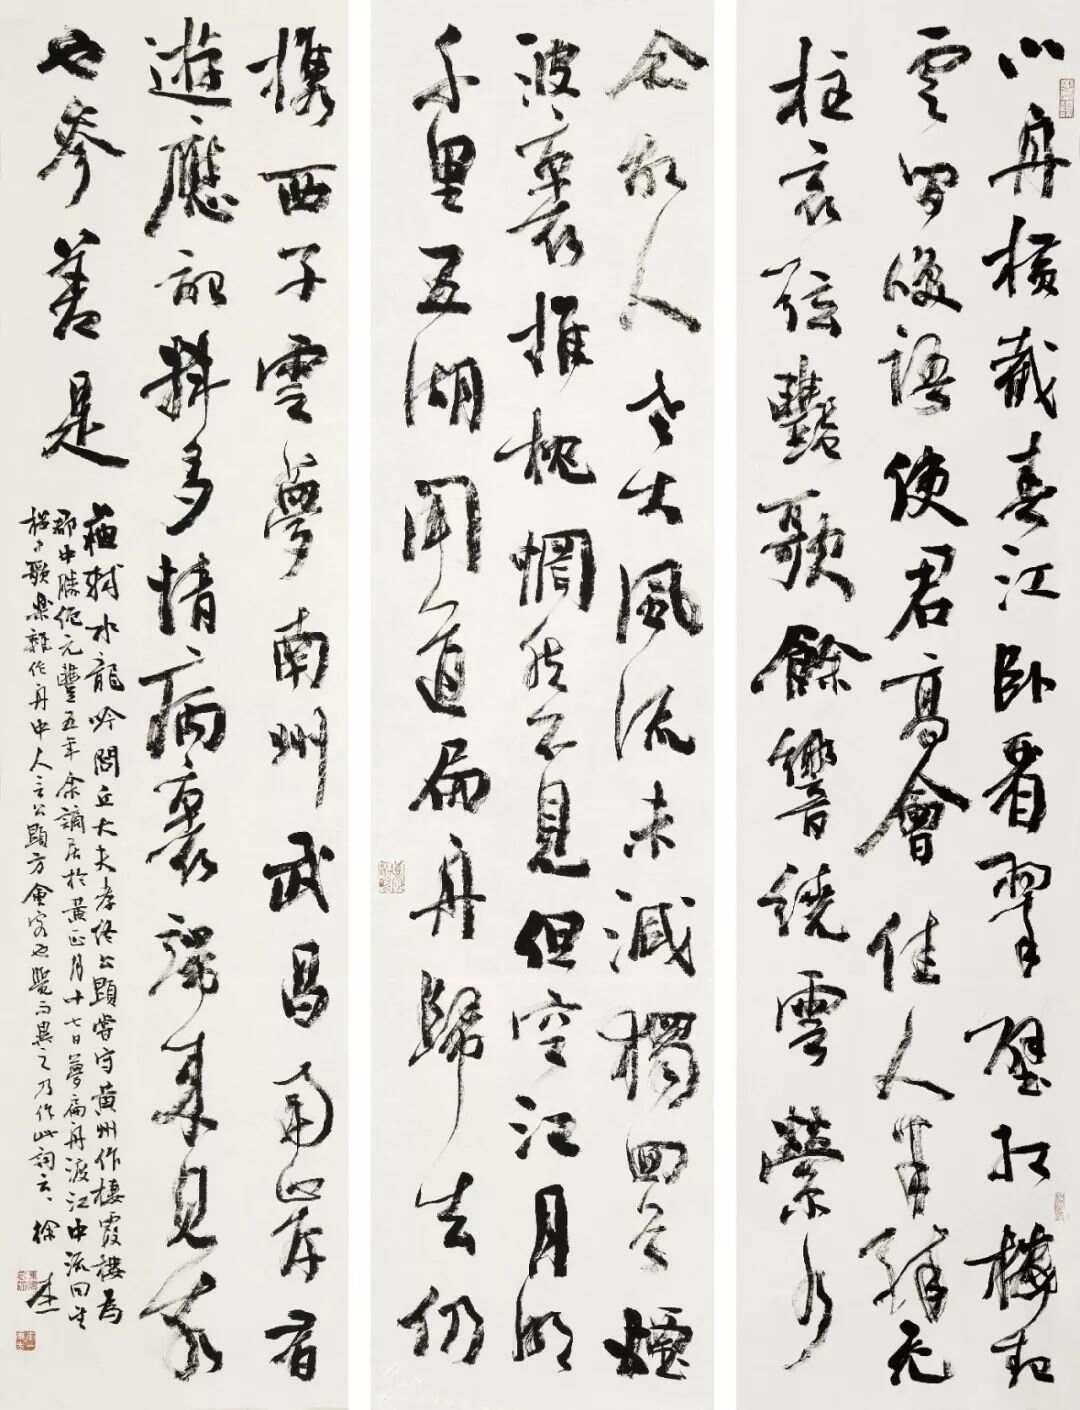 小舟橫截春江卧看翠壁紅樓起
雲間俊語使君高會佳人半醉危
柱哀弦豔歌餘響繞雲縈水
念故人老大風流未減獨回首煙
波裏推枕惘然不見但空江月明
千里五湖聞道扁舟歸去仍
攜西子雲夢南州武昌南岸昔
遊應記料多情病裏端來見我
也參差是
蘇軾水龍吟閭丘大夫孝終公顯嘗守黃州作棲霞樓為
郡中勝絕元豐五年余謫居於黃正月十七日夢扁舟渡江中流回望
樓中歌樂雜作舟中人言公顯方會客也覺而異之乃作此詞云、徐本一